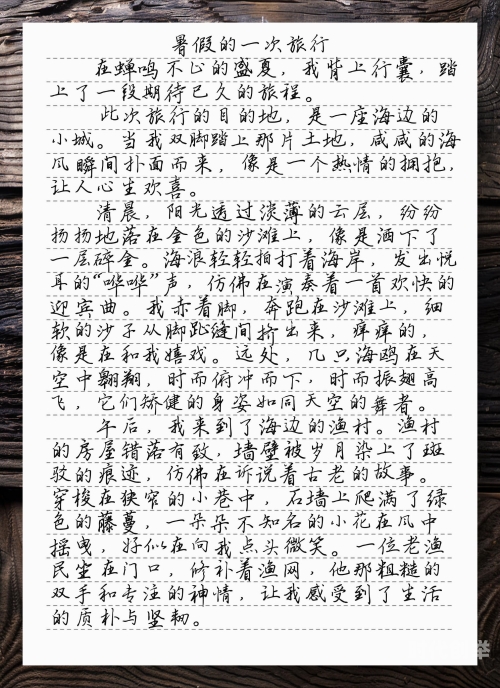 暑假的一次旅行
在蝉鸣不止的盛夏，我背上行囊，踏
上了一段期待已久的旅程。
此次旅行的目的地，是一座海边的
小城。当我双脚踏上那片土地，咸咸的海
风瞬间扑面而来，像是一个热情的拥抱，
让人心生欢喜。
清晨，阳光透过淡薄的云层，纷纷
扬扬地落在金色的沙滩上，像是洒下了
一层碎金。海浪轻轻拍打着海岸，发出悦
耳的“哗哗”声，仿佛在演奏着一首欢快的
迎宾曲。我赤着脚，奔跑在沙滩上，细
软的沙子从脚趾缝间挤出来，痒痒的，
像是在和我嬉戏。远处，几只海鸥在天
空中翱翔，时而俯冲而下，时而振翅高
飞，它们矫健的身姿如同天空的舞者。
午后，我来到了海边的渔村。渔村
的房屋错落有致，墙壁被岁月染上了斑
驳的痕迹，仿佛在诉说着古老的故事。
穿梭在狭窄的小巷中，石墙上爬满了绿
色的藤蔓，一朵朵不知名的小花在风中
摇曳，好似在向我点头微笑。一位老渔
民坐在门口，修补着渔网，他那粗糙的
双手和专注的神情，让我感受到了生活
的质朴与坚韧。